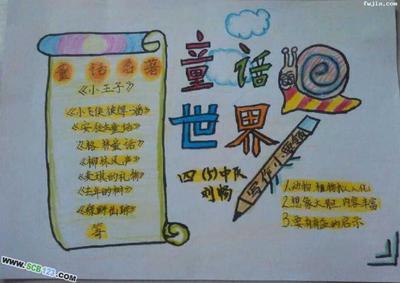 fwjia.com
童话名著
《小王子》
《小飞侠彼得·潘》
《安徒生童话》
《格林童话》
《柳林风声》
《麦琪的礼物》
《去年的树》
《绿野仙踪》
等
童话
世界
四(5)中队
刘畅
写作小要领
1.动物 植物拟人化
2.想象大胆 内容丰富
3.要有有益的启示
www.SCB123.com